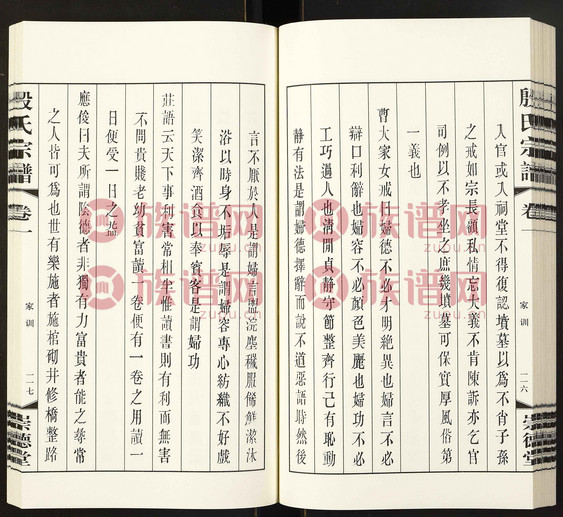 殷氏宗譜
卷一
家训
一二六
崇德堂
入官或入祠堂不得復認墳墓以為不肖子孫
之戒如宗長徇私情忘大義不肯陳訴亦乞官
司例以不孝坐之庶幾墳墓可保實厚風俗第
一義也
曹大家女戒曰婦德不必才明絶異也婦言不必
辯口利辭也婦容不必顏色美麗也婦功不必
工巧過人也清閒貞靜守節整齊行己有恥動
靜有法是謂婦德擇辭而說不道惡語時然後
言不厭於人是謂婦言盥浣塵穢服飾鮮潔沐
浴以時身不垢辱是謂婦容專心紡織不好戲
笑潔齊酒食以奉賓客是謂婦功
莊語云天下事利害常相半惟讀書則有利而無害
不問貴賤老幼貧富讀一卷便有一卷之用讀一
日便受一日之益
應俊曰夫所謂陰德者非獨有力富貴者能之尋常
之人皆可為也世有樂施者施棺砌井修橋整路
殷氏宗譜
卷一
家训
一二七
崇德堂
族谱网
zupu.cn
族谱网
zupu.cn
族谱网
zupu.cn
族谱网
zupu.cn